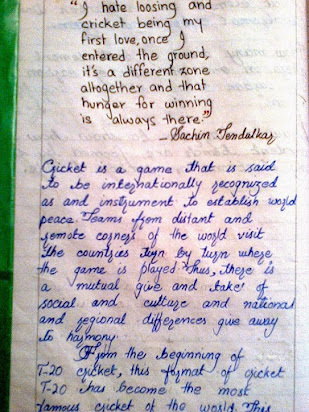 "I hate loosing and
cricket being my
first love, once I
entered the ground,
it's a different zone
altogether and that
hunger for winning
is always there."
– Sachin Tendulkar
Cricket is a game that is said
to be internationally recognized
as and instrument to establish world
peace. Teams from distant and
remote corners of the world visit
the countries turn by turn where
the game is played. Thus, there is
a mutual give and take of
social and culture and national
and regional differences give away
to harmony.
From the beginning of
T-20 cricket, this format of cricket
T-20 has become the most
famous cricket of the world. This